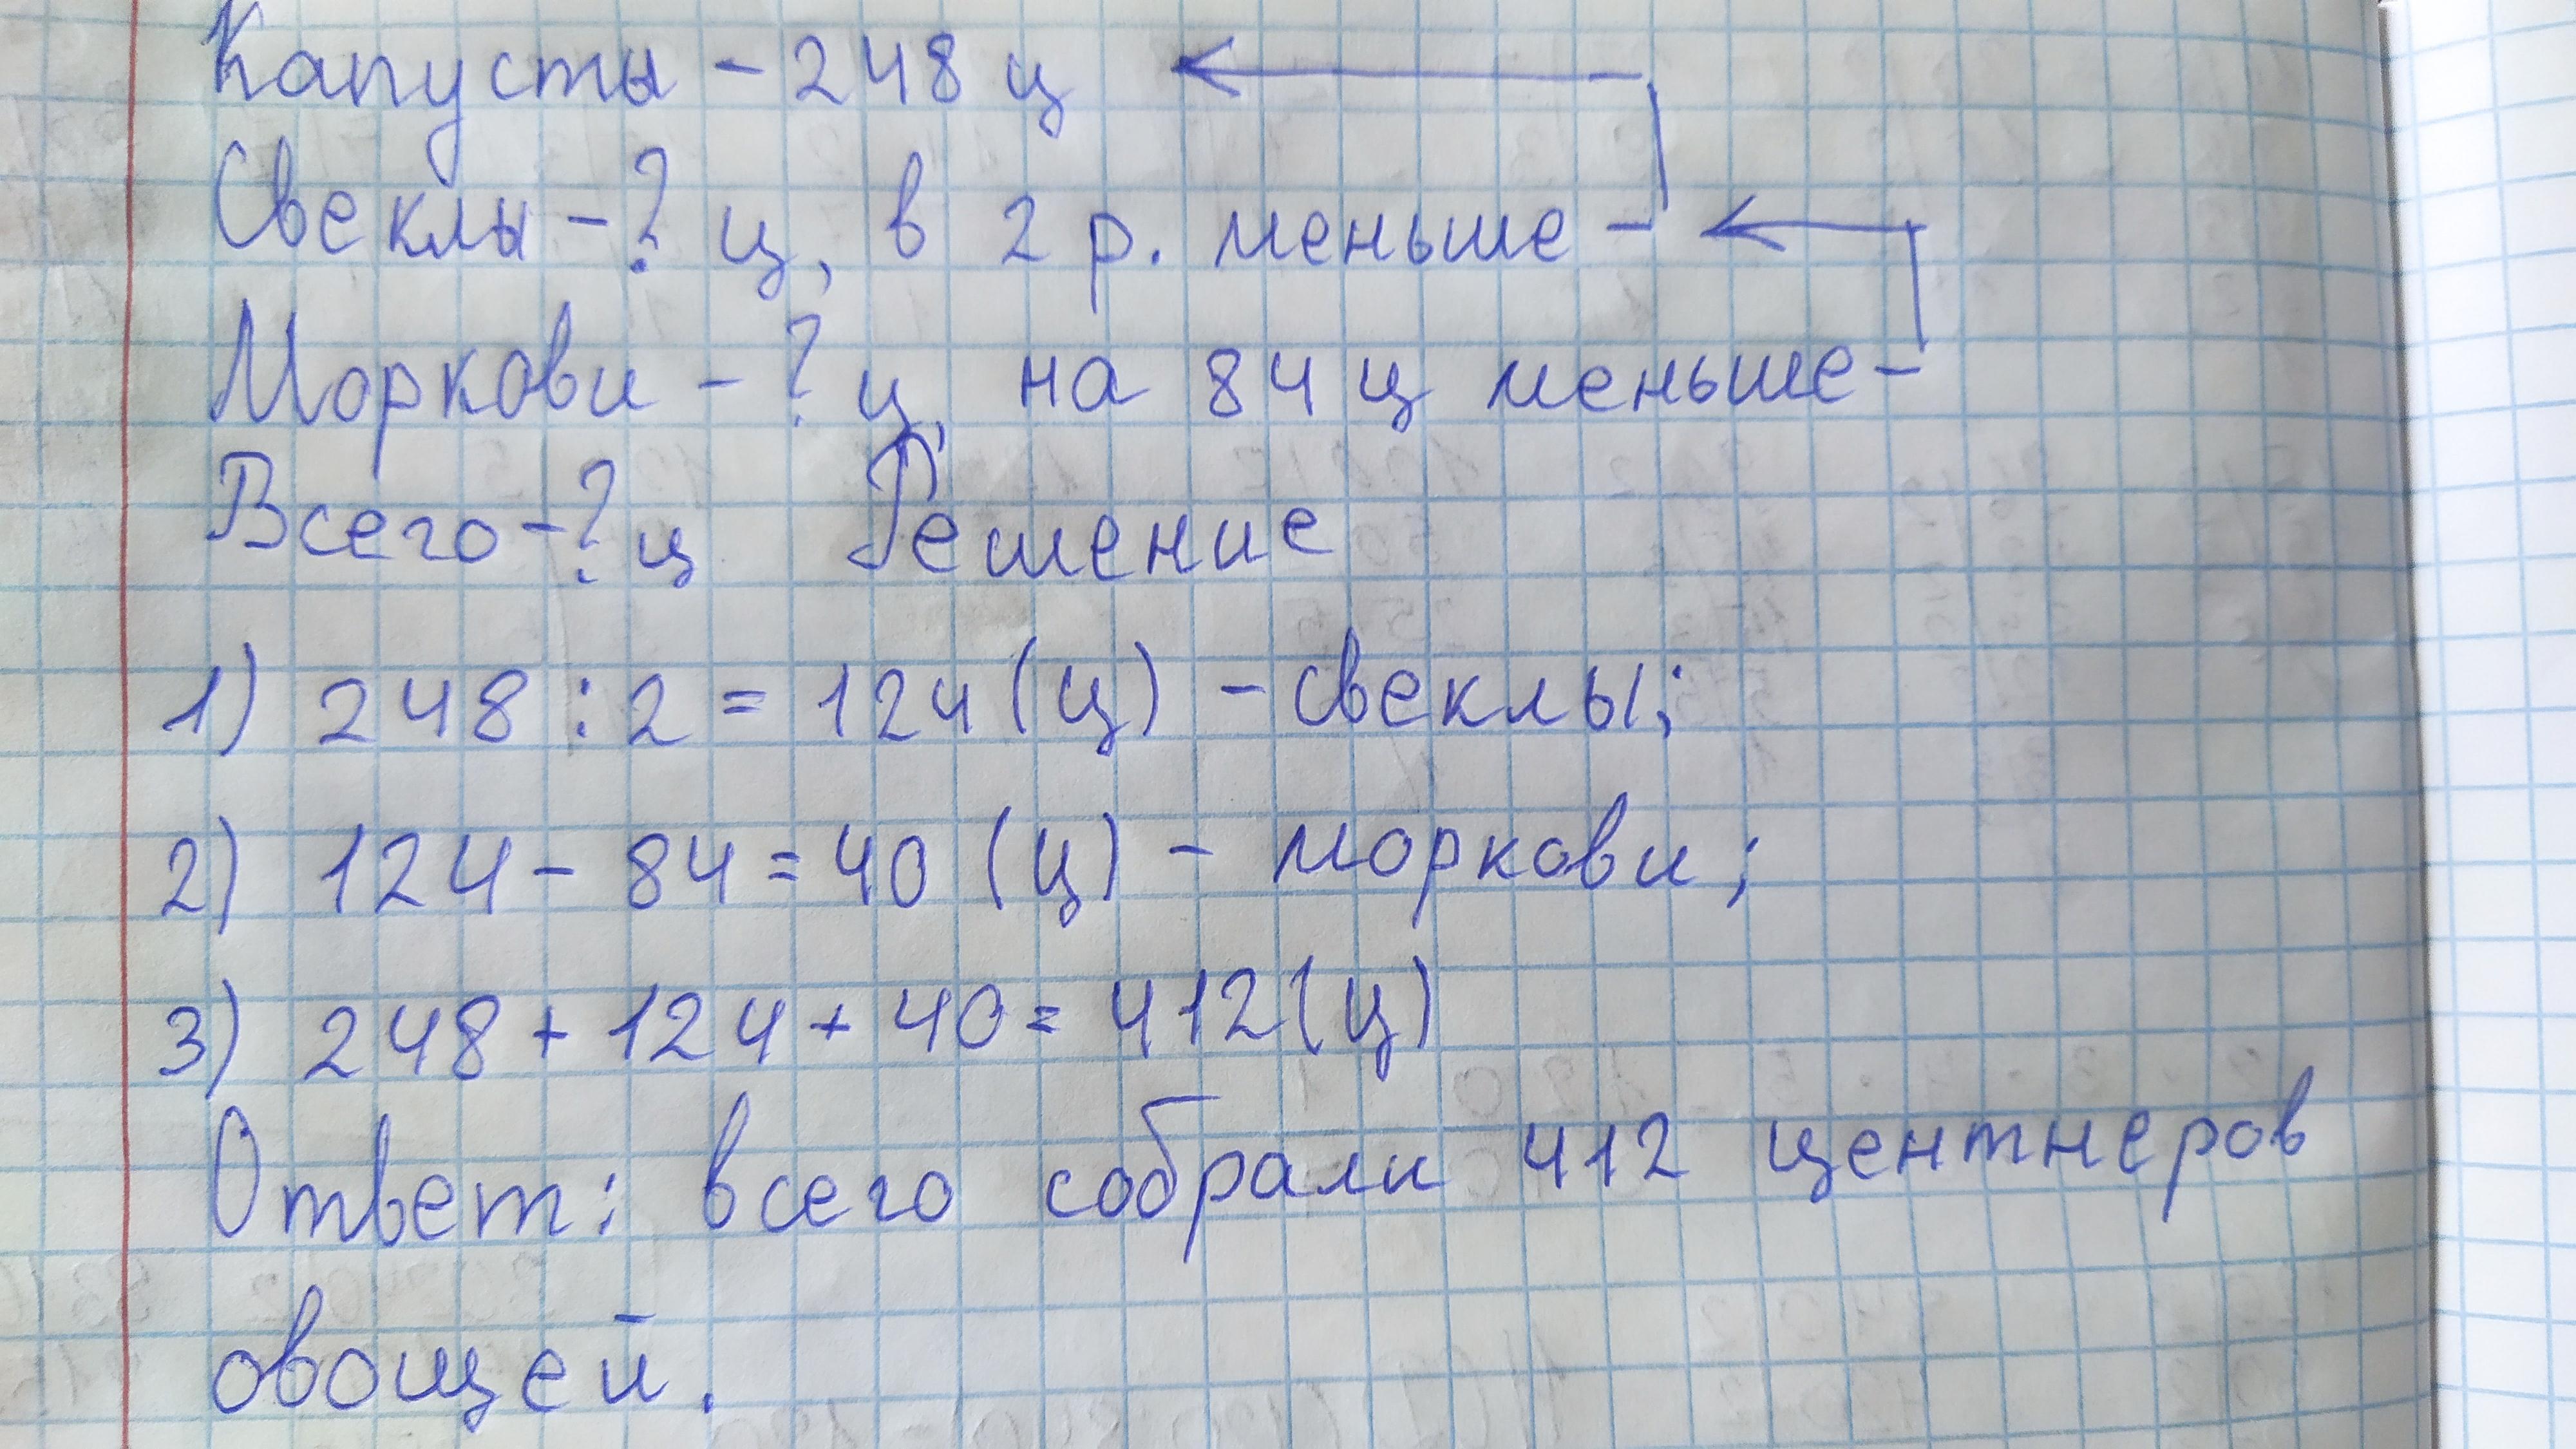 Капусты - 248 ц
Свеклы - ? ц, в 2 р. меньше -
Моркови - ? ц, на 84 ц меньше -
Всего - ? ц Решение
1) 248 : 2 = 124 (ц) - свеклы;
2) 124 - 84 = 40 (ц) - моркови;
3) 248 + 124 + 40 = 412 (ц)
Ответ: всего собрали 412 центнеров
овощей.